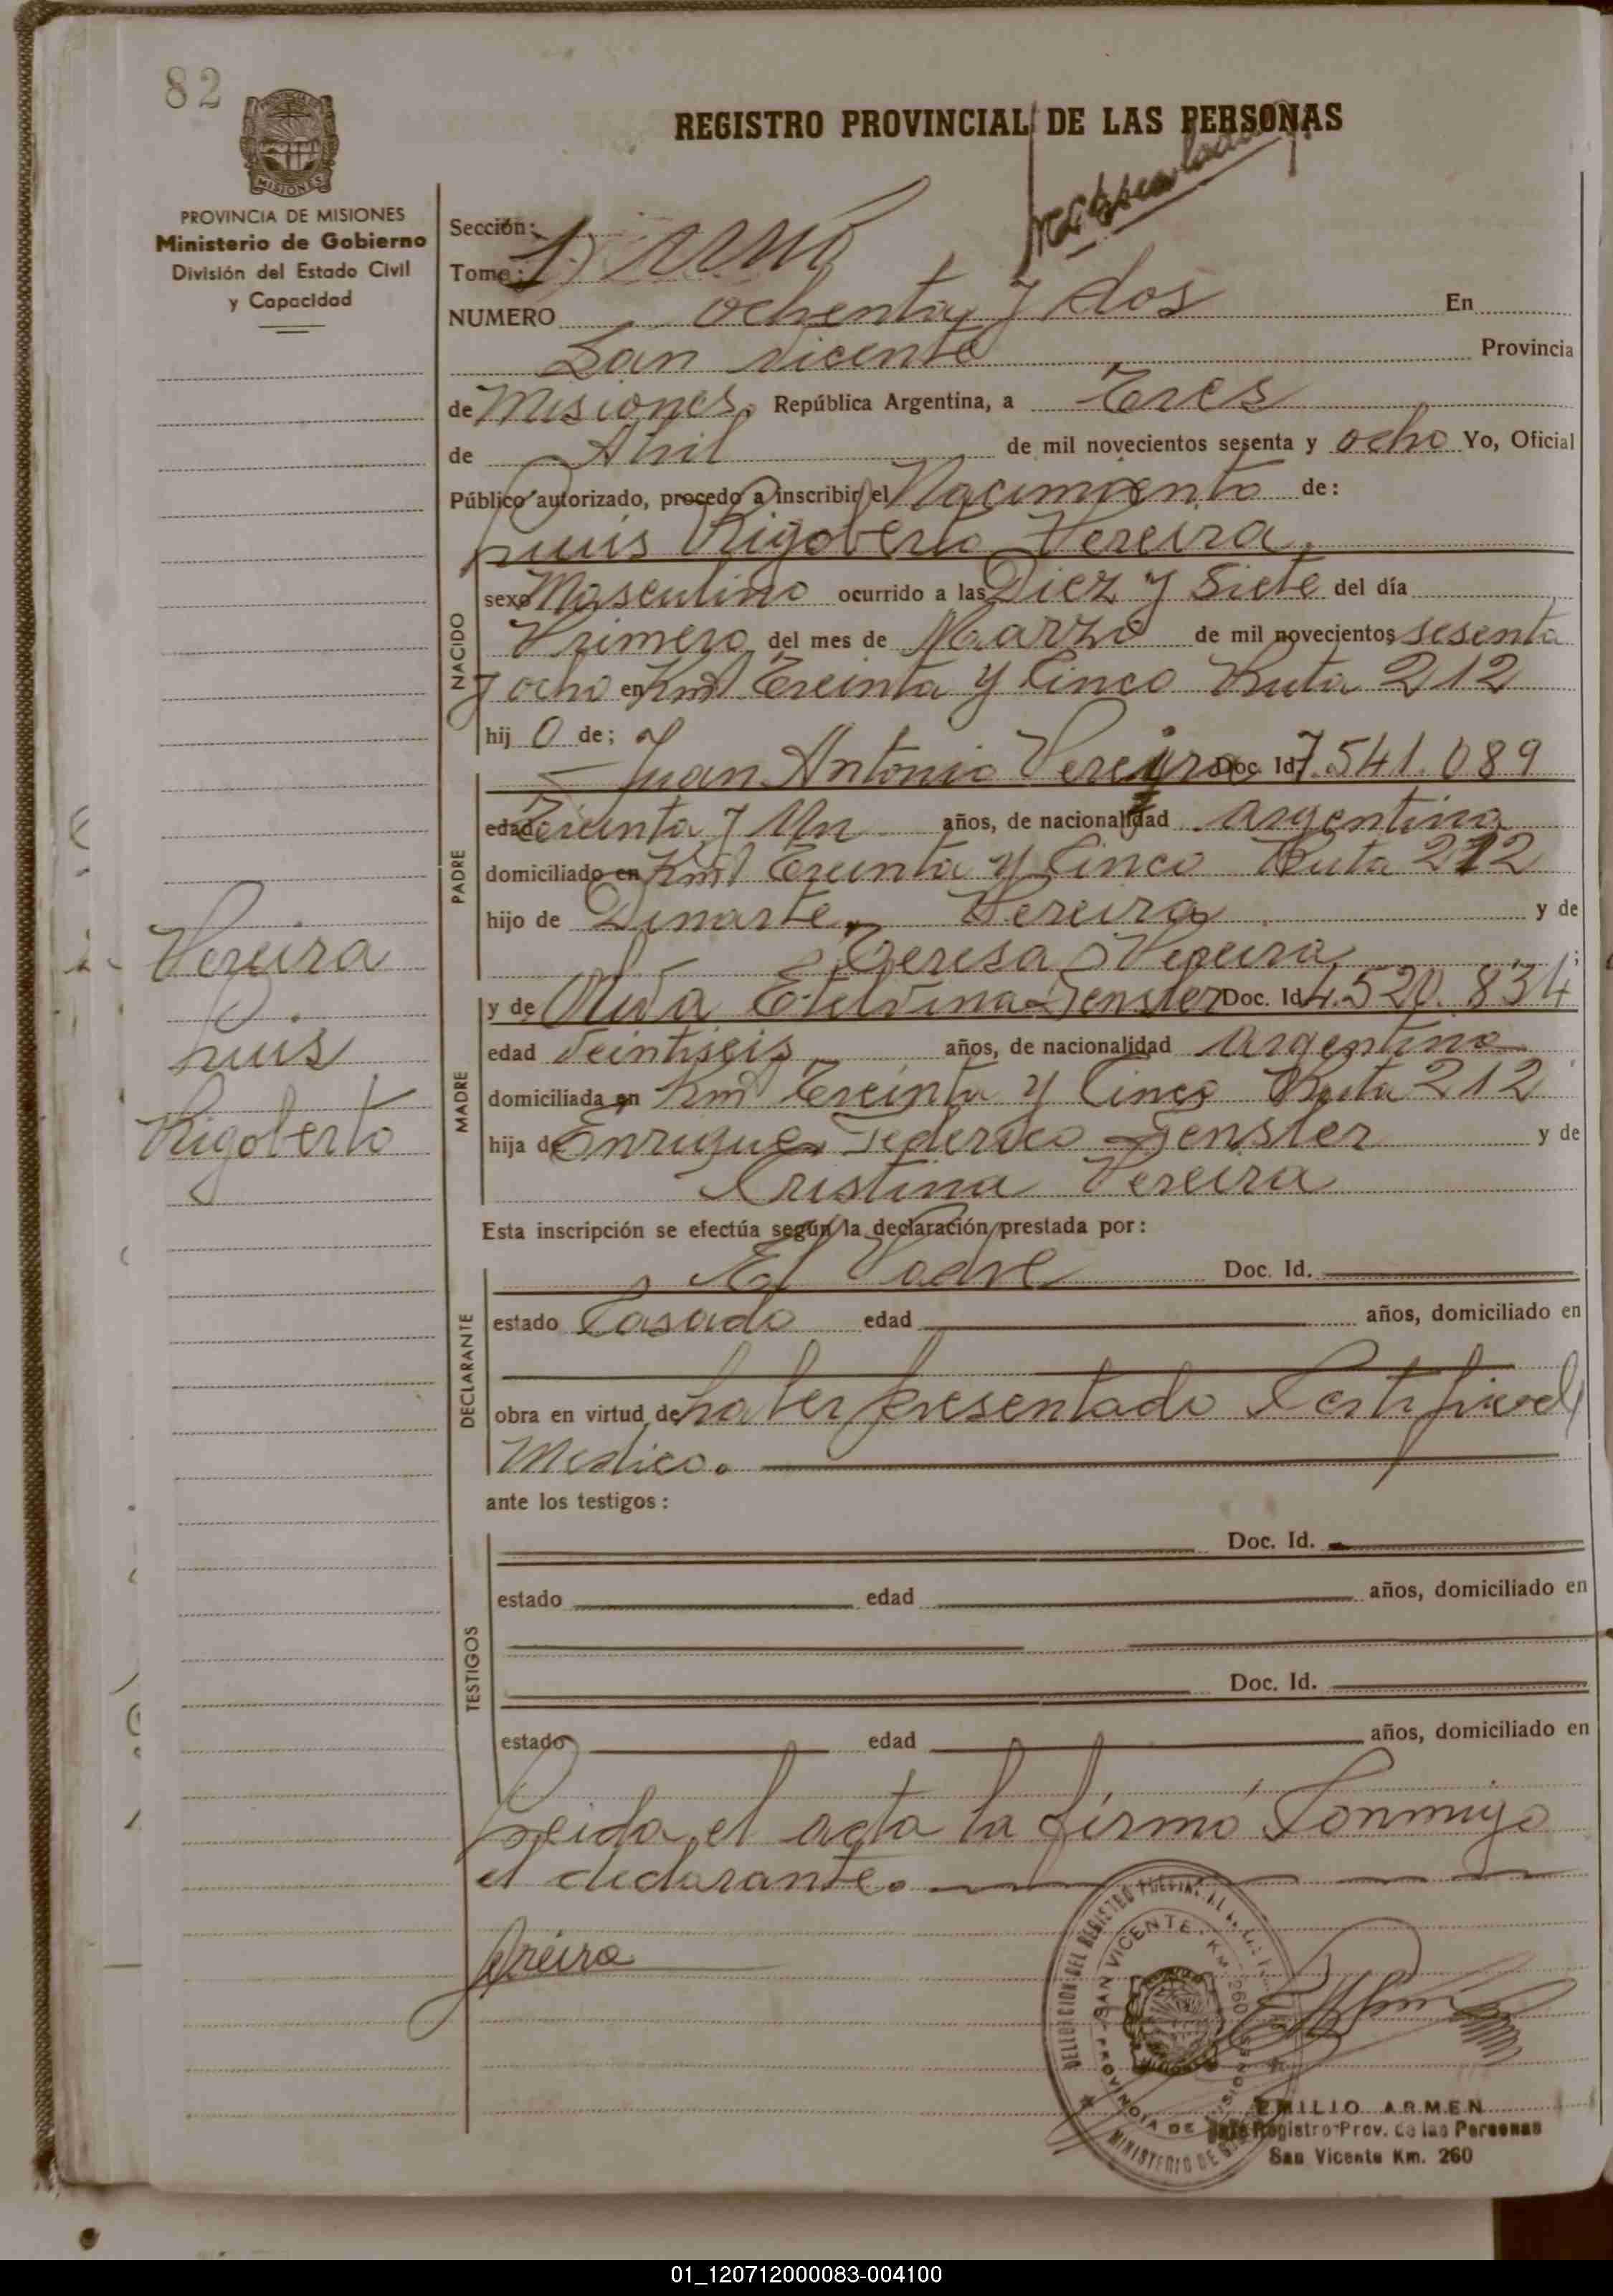 82
REGISTRO PROVINCIAL DE LAS PERSONAS
PROVINCIA DE MISIONES
MISIONES
PROVINCIA DE MISIONES
Ministerio de Gobierno
División del Estado Civil
y Capacidad
Sección: 1
Tomo:
NUMERO ochenta y dos En
San Vicente Provincia
de Misiones. República Argentina, a Tres
de Abril de mil novecientos sesenta y ocho Yo, Oficial
Público autorizado, procedo a inscribir el Nacimiento de:
Luis Rigoberto Pereira,
NACIDO
sexo Masculino ocurrido a las Diez y Siete del día
Primero del mes de Marzo de mil novecientos sesenta
y ocho en Km Treinta y Cinco Ruta 212
hij o de;
PADRE
Juan Antonio Pereira Doc. Id 7.541.089
edad Treinta y Un años, de nacionalidad argentina
domiciliado en Km Treinta y Cinco Ruta 212
hijo de Dinarte Pereira y de
Teresa Pereira ;
MADRE
y de Etelvina Gensler Doc. Id 4.520.834
edad veintiseis años, de nacionalidad argentina
domiciliada en Km Treinta y Cinco Ruta 212
hija de Enrique Federico Gensler y de
Cristina Pereira
Pereira
Luis
Rigoberto
Esta inscripción se efectúa según la declaración prestada por:
DECLARANTE
El Padre Doc. Id.
estado Casado edad años, domiciliado en
obra en virtud de haber presentado
Medico.
ante los testigos:
TESTIGOS
Doc. Id.
estado edad años, domiciliado en
Doc. Id.
estado edad años, domiciliado en
Leida el acta la firmó Conmigo
el declarante.
Pereira
SAN VICENTE - KM. 260
PROVINCIA DE MISIONES
EMILIO ARMEN
Registro Prov. de las Personas
San Vicente Km. 260
01_120712000083-004100